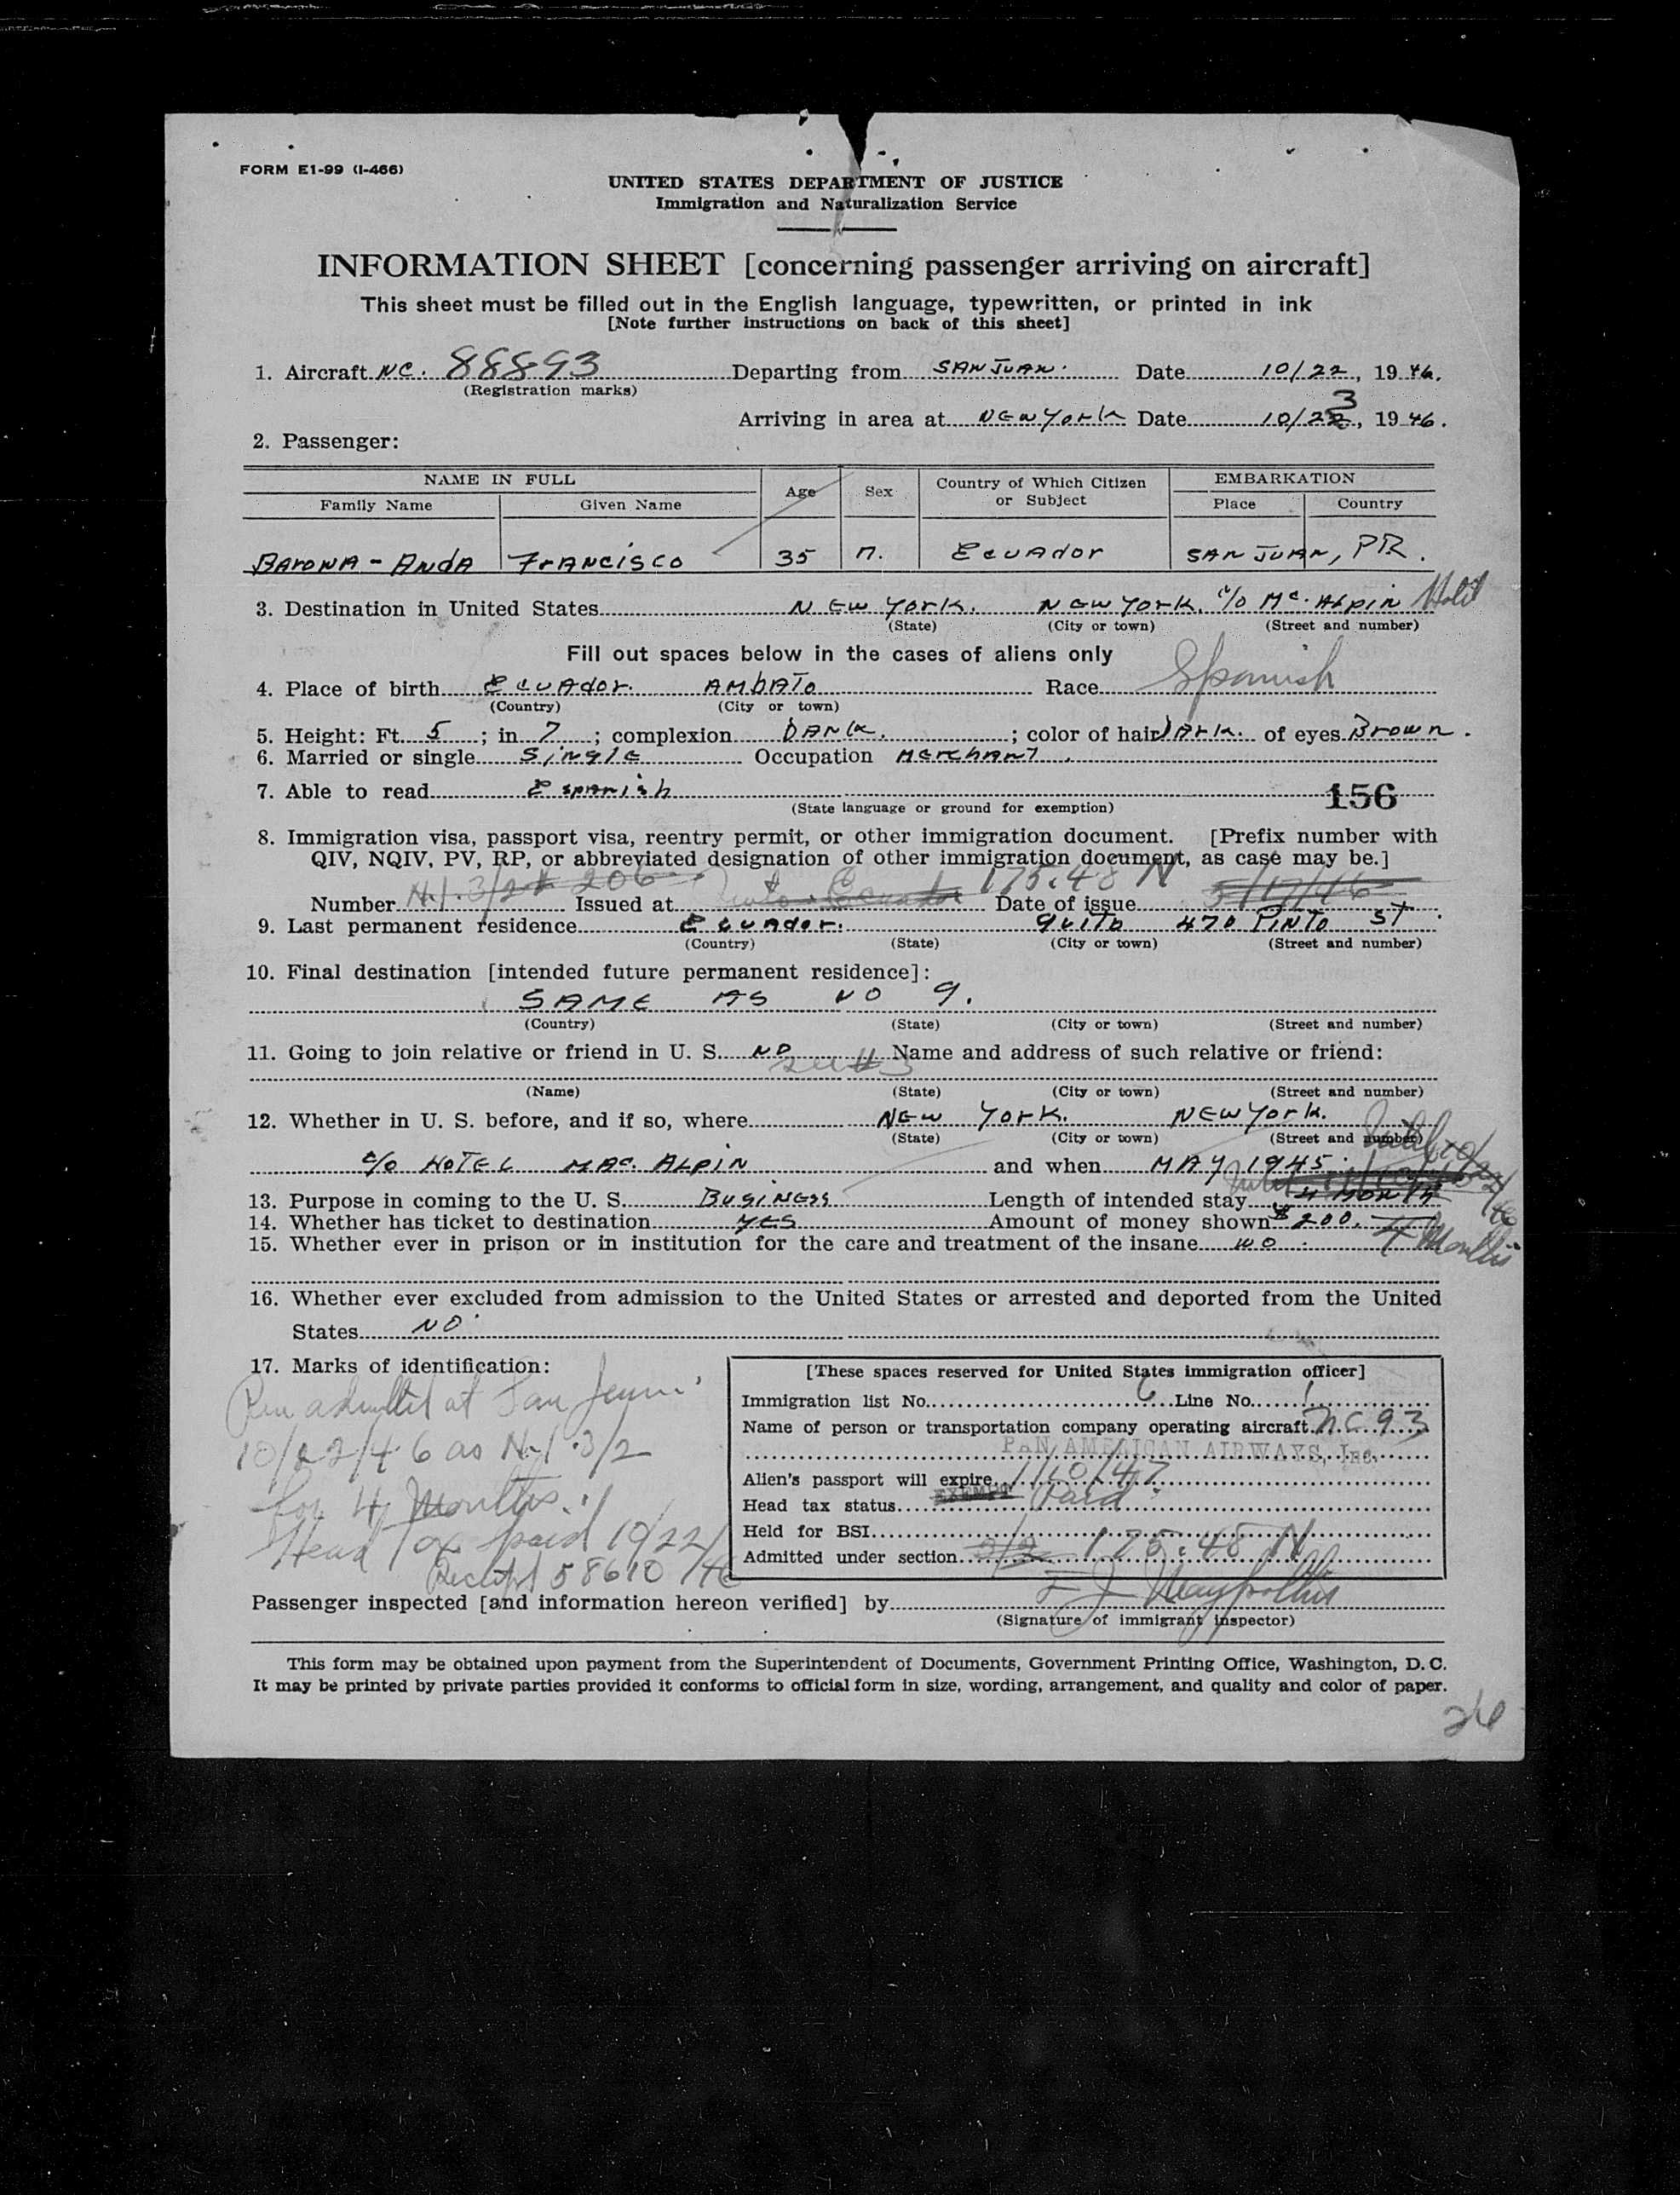 FORM E1-99 (I-466)
UNITED STATES DEPARTMENT OF JUSTICE
Immigration and Naturalization Service
INFORMATION SHEET [concerning passenger arriving on aircraft]
This sheet must be filled out in the English language, typewritten, or printed in ink
[Note further instructions on back of this sheet]
1. Aircraft NC. 88893 Departing from SAN JUAN. Date 10/22, 1946.
(Registration marks)
Arriving in area at NEW YORK Date 10/23, 1946.
2. Passenger:
NAME IN FULL Age Sex Country of Which Citizen or Subject EMBARKATION
Family Name Given Name Place Country
BARONA - ANDA FRANCISCO 35 M. ECUADOR SAN JUAN, PR.
3. Destination in United States NEW YORK. NEW YORK. c/o Mc. ALPIN Hotel
(State) (City or town) (Street and number)
Fill out spaces below in the cases of aliens only
4. Place of birth ECUADOR. AMBATO Race Spanish
(Country) (City or town)
5. Height: Ft. 5; in 7; complexion DARK.; color of hair DARK. of eyes Brown.
6. Married or single Single Occupation Merchant.
7. Able to read Espanish 156
(State language or ground for exemption)
8. Immigration visa, passport visa, reentry permit, or other immigration document. [Prefix number with
QIV, NQIV, PV, RP, or abbreviated designation of other immigration document, as case may be.]
Number N.I. 3/2 # 206 Issued at Quito - Ecuador 175.48 N Date of issue 5/17/46
9. Last permanent residence ECUADOR. QUITO 470 PINTO ST.
(Country) (State) (City or town) (Street and number)
10. Final destination [intended future permanent residence]:
SAME AS NO 9.
(Country) (State) (City or town) (Street and number)
11. Going to join relative or friend in U. S. NO Name and address of such relative or friend:
see #3
(Name) (State) (City or town) (Street and number)
12. Whether in U. S. before, and if so, where NEW YORK. NEW YORK.
(State) (City or town) (Street and number)
c/o HOTEL MAC. ALPIN and when MAY 1945.
13. Purpose in coming to the U. S. BUSINESS Length of intended stay 4 MONTH
14. Whether has ticket to destination YES Amount of money shown $200.
4 Months
15. Whether ever in prison or in institution for the care and treatment of the insane NO.
16. Whether ever excluded from admission to the United States or arrested and deported from the United
States NO.
17. Marks of identification:
admitted at San Juan.
10/22/46 as N.I. 3/2
for 4 Months.
Head Tax paid 10/22/46
Receipt 58610
[These spaces reserved for United States immigration officer]
Immigration list No. 6 Line No. 1
Name of person or transportation company operating aircraft NC 93
PAN AMERICAN AIRWAYS, Inc.
Alien's passport will expire 1/10/47
Head tax status EXEMPT Paid
Held for BSI
Admitted under section 3/2 175.48 N
Passenger inspected [and information hereon verified] by
(Signature of immigrant inspector)
This form may be obtained upon payment from the Superintendent of Documents, Government Printing Office, Washington, D. C.
It may be printed by private parties provided it conforms to official form in size, wording, arrangement, and quality and color of paper.
26